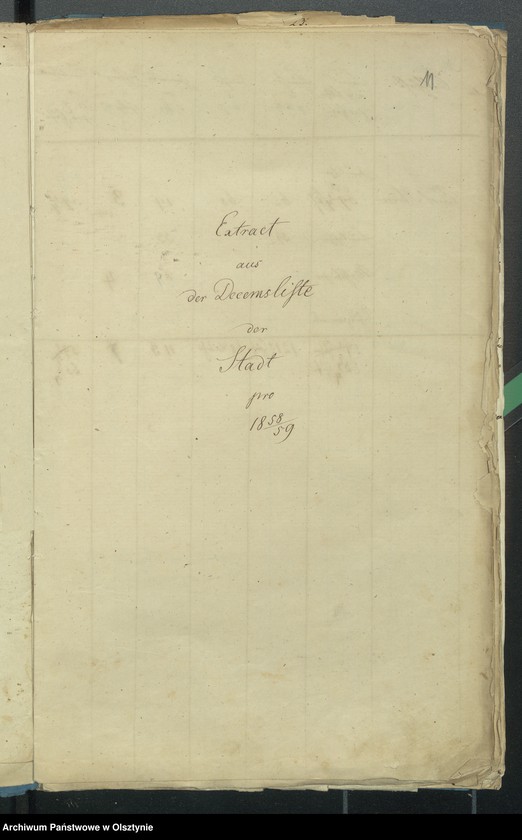 11
Extract
aus
der Decemsliste
der
Stadt
pro
1858/59
Archiwum Państwowe w Olsztynie